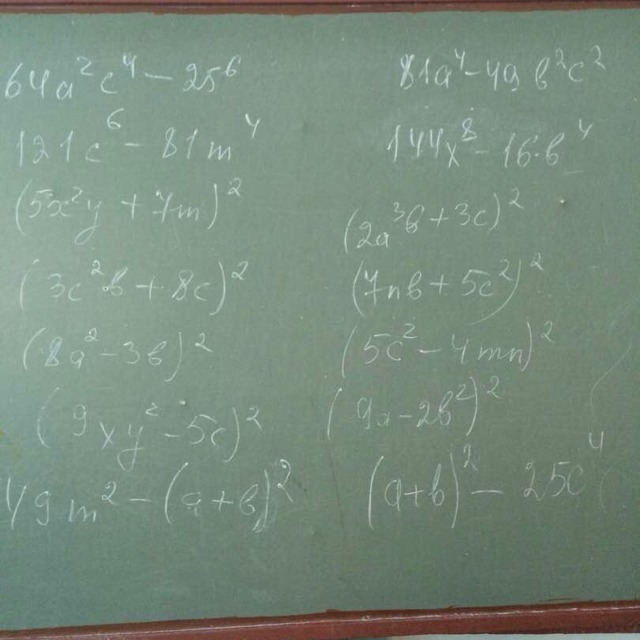 64a²c⁴ - 25⁶
121c⁶ - 81m⁴
(5x²y + 7m)²
(3c²b + 8c)²
(8a² - 3b)²
(9xy² - 5c)²
49m² - (a+b)²
81a⁴ - 49b²c²
144x⁸ - 16·b⁴
(2a³b + 3c)²
(7nb + 5c²)²
(5c² - 4mn)²
(9a - 2b²)²
(a+b)² - 25c⁴